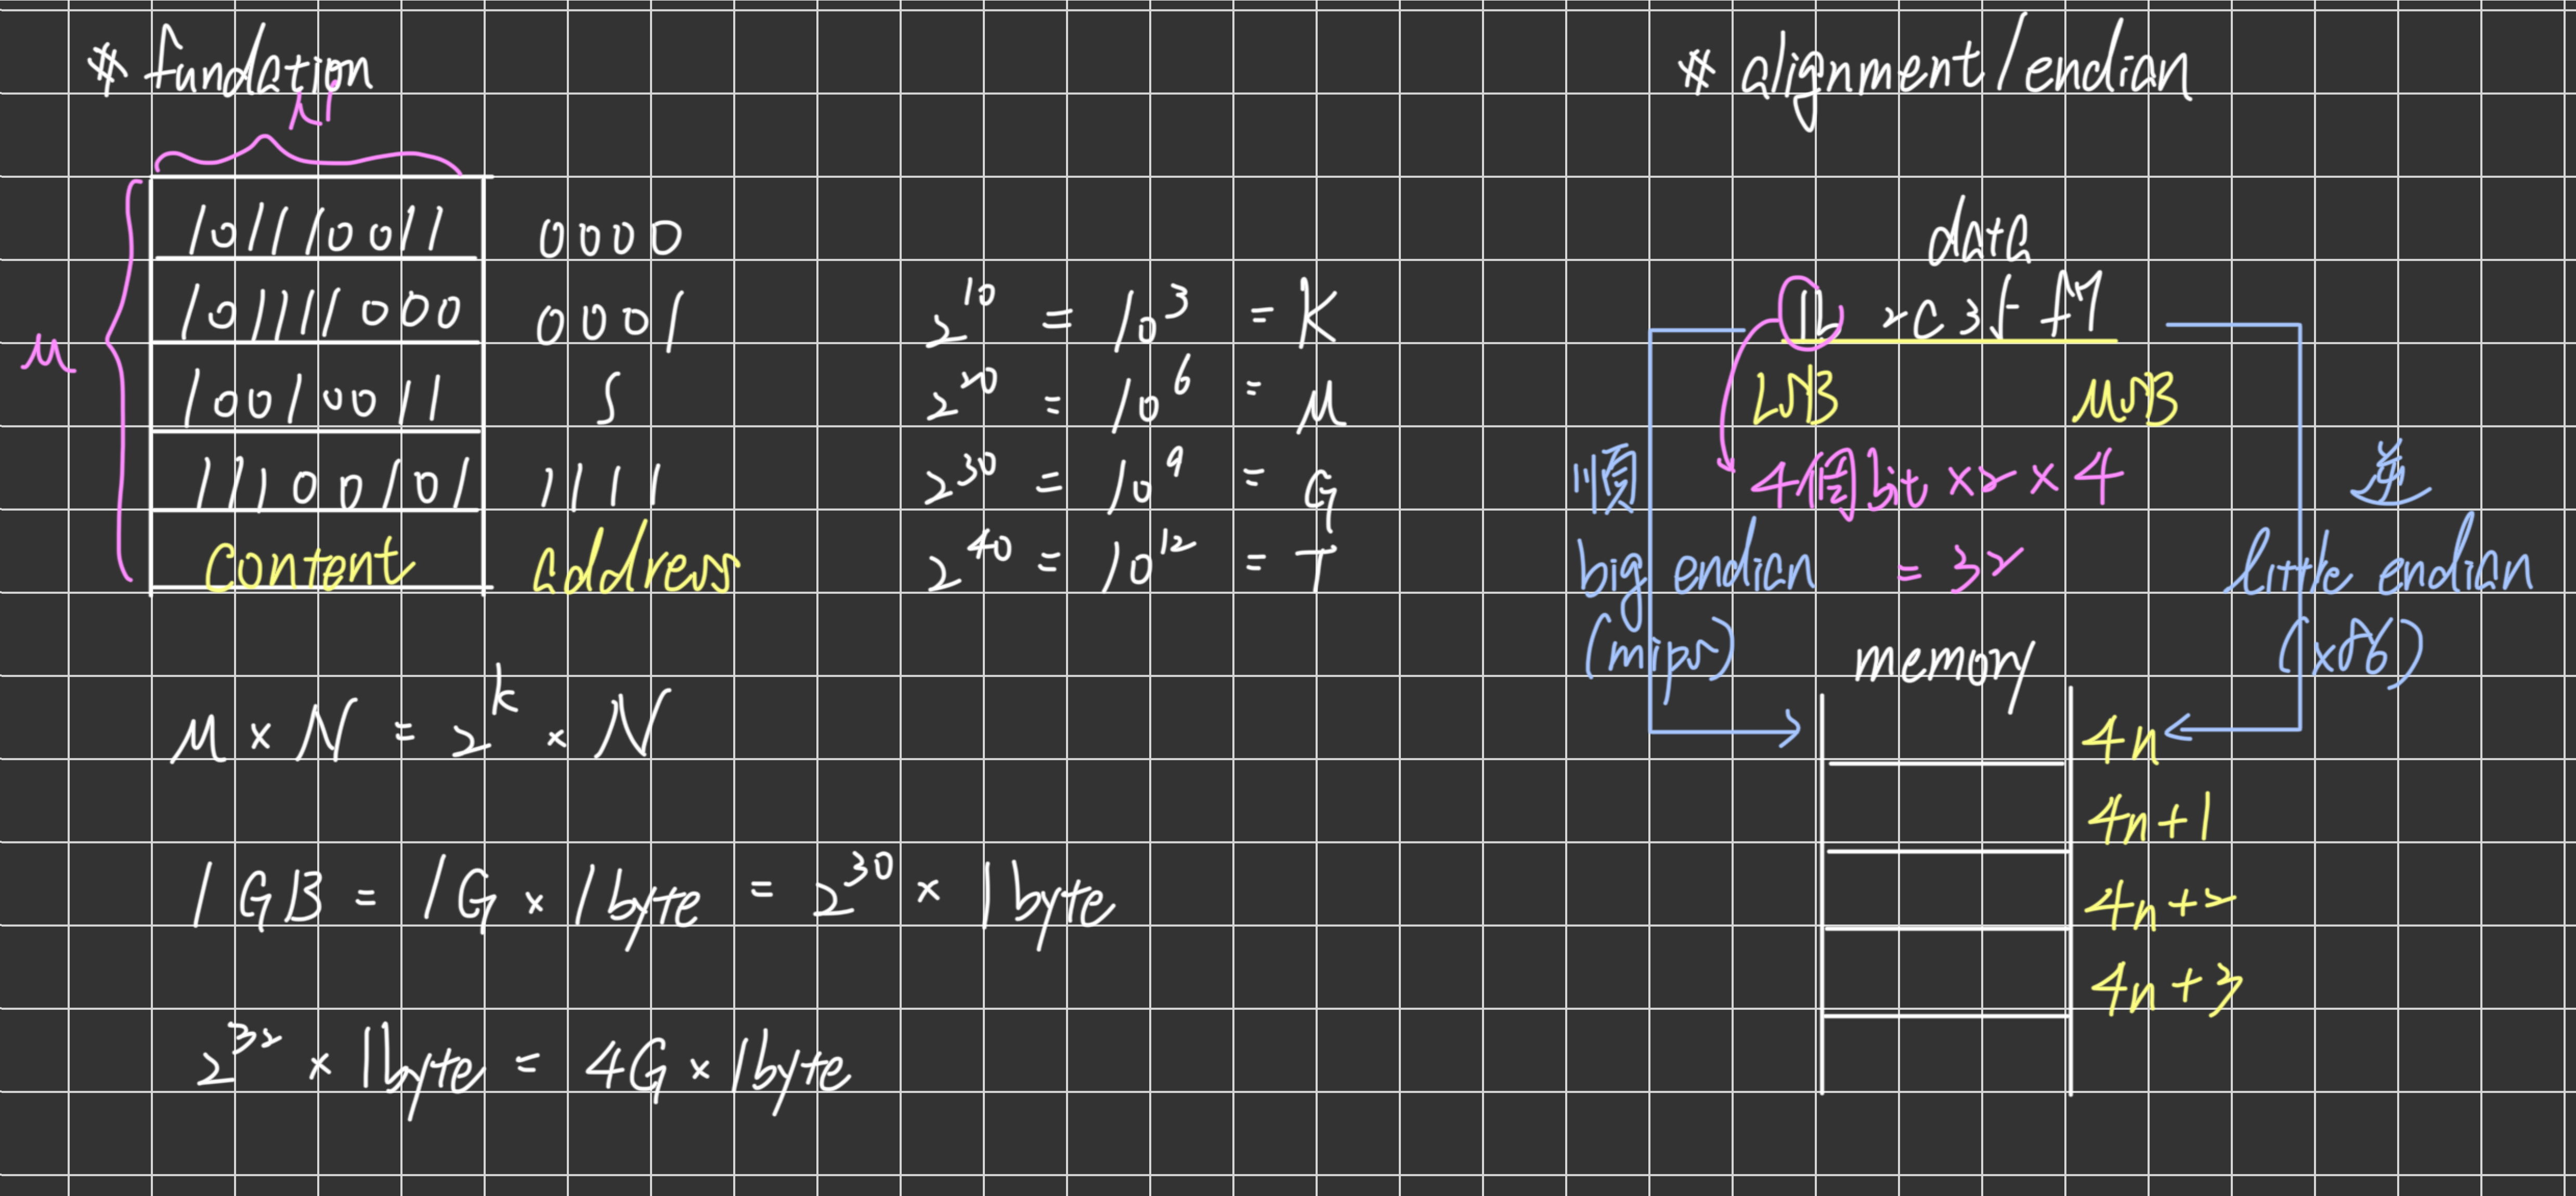 * fundation
N
M
1011110011 0000
101111000 0001
10010011 ⟆
11100101 1111
content address
2^10 = 10^3 = K
2^20 = 10^6 = M
2^30 = 10^9 = G
2^40 = 10^12 = T
M × N = 2^k × N
1 GB = 1G × 1byte = 2^30 × 1byte
2^32 × 1byte = 4G × 1byte
* alignment/endian
data
2C 3f
LSB MSB
4個bit ×2 ×4
= 32
順
big endian
(mips)
逆
little endian
(x86)
memory
4n
4n+1
4n+2
4n+3